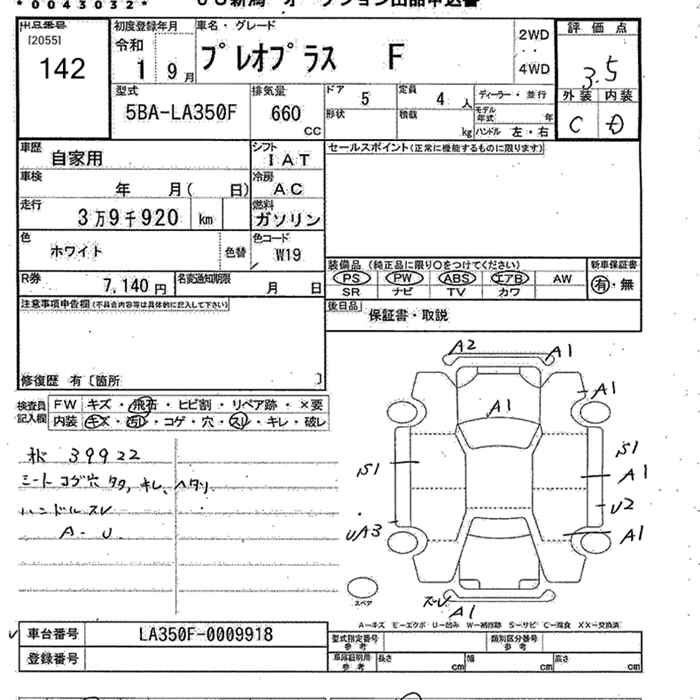 *0043032*
出品番号
[2055]
142
初度登録年月
令和
1 9月
車名・グレード
プレオプラス F
2WD
4WD
評価点
3.5
外装 内装
C D
型式
5BA-LA350F
排気量
660
CC
ドア
5
定員
4 人
ディーラー・並行
形状
積載
kg
モデル年式
年
ハンドル 左・右
車歴
自家用
シフト
IAT
セールスポイント(正常に機能するものに限ります)
車検
年 月( 日)
冷房
AC
走行
3万9千920 km
燃料
ガソリン
色
ホワイト
色替
色コード
W19
装備品 (純正品に限り〇をつけてください)
新車保証書
PS PW ABS エアB AW
有・無
SR ナビ TV カワ
R券
7,140円
名変通知期限
月 日
後日品
保証書・取説
注意事項申告欄(不具合内容等は具体的に記入して下さい)
修復歴 有〔箇所 〕
検査員記入欄
FW キズ・飛石・ヒビ割・リペア跡・×要
内装 キズ・汚レ・コゲ・穴・スレ・キレ・破レ
39922
シートコゲ穴 タタ, キレ、ヘタリ
ハンドルスレ
A-U
A2
A1
A1
A1
S1
S1
A1
U2
UA3
A1
ズレ
A1
スペア
A―キズ E―エクボ U―凹み W―補修跡 S―サビ C―腐食 XX―交換済
車台番号
LA350F-0009918
型式指定番号
参考
類別区分番号
参考
登録番号
車庫証明用
参考
長さ cm
幅 cm
高さ cm